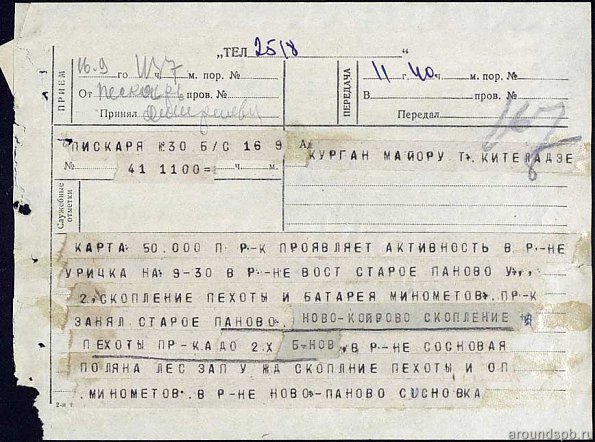 „ТЕЛ 25/8 “
ПРИЕМ
16.9 го ч. м. пор. №
От пескарь пров. №
Принял
ПЕРЕДАЧА
11 г. 40 ч. м. пор. №
В пров. №
Передал
ПИСКАРЯ №30 Б/С 16 9
№ 41 1100= ч. м.
Ад
КУРГАН МАЙОРУ Т. КИТЕЛАДЗЕ
Служебные отметки
КАРТА 50.000 П Р-К ПРОЯВЛЯЕТ АКТИВНОСТЬ В Р-НЕ
УРИЧКА НА 9-30 В Р-НЕ ВОСТ СТАРОЕ ПАНОВО У,,,
2, СКОПЛЕНИЕ ПЕХОТЫ И БАТАРЕЯ МИНОМЕТОВ. ПР-К
ЗАНЯЛ СТАРОЕ ПАНОВО. НОВО-КОЙРОВО СКОПЛЕНИЕ
ПЕХОТЫ ПР-КА ДО 2.Х Б-НОВ, В Р-НЕ СОСНОВАЯ
ПОЛЯНА ЛЕС ЗАП У ЖД СКОПЛНИЕ ПЕХОТЫ И ОП
.МИНОМЕТОВ. В Р-НЕ НОВО-ПАНОВО СУСНОВКА
2-я т.
aroundspb.ru